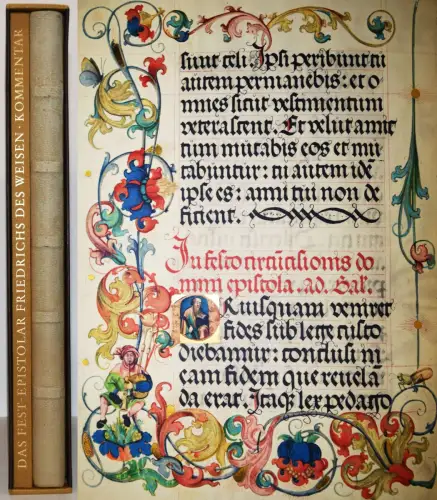 DAS FEST-EPISTOLAR FRIEDRICHS DES WEISEN · KOMMENTAR
sunt celi. Ipsi peribunt tu
autem permanebis: et o
mnes sicut vestimentum
veterascent. Et velut amic
tum mutabis eos et mu
tabuntur: tu autem idē
ipse es: anni tui non de
ficient.
In festo circūcisionis do
mini epistola. ad. Gal.
PRiusquam veniret
fides sub lege custo
diebamur: conclusi in
eam fidem que revelā
da erat. Itaqꝫ lex pedago